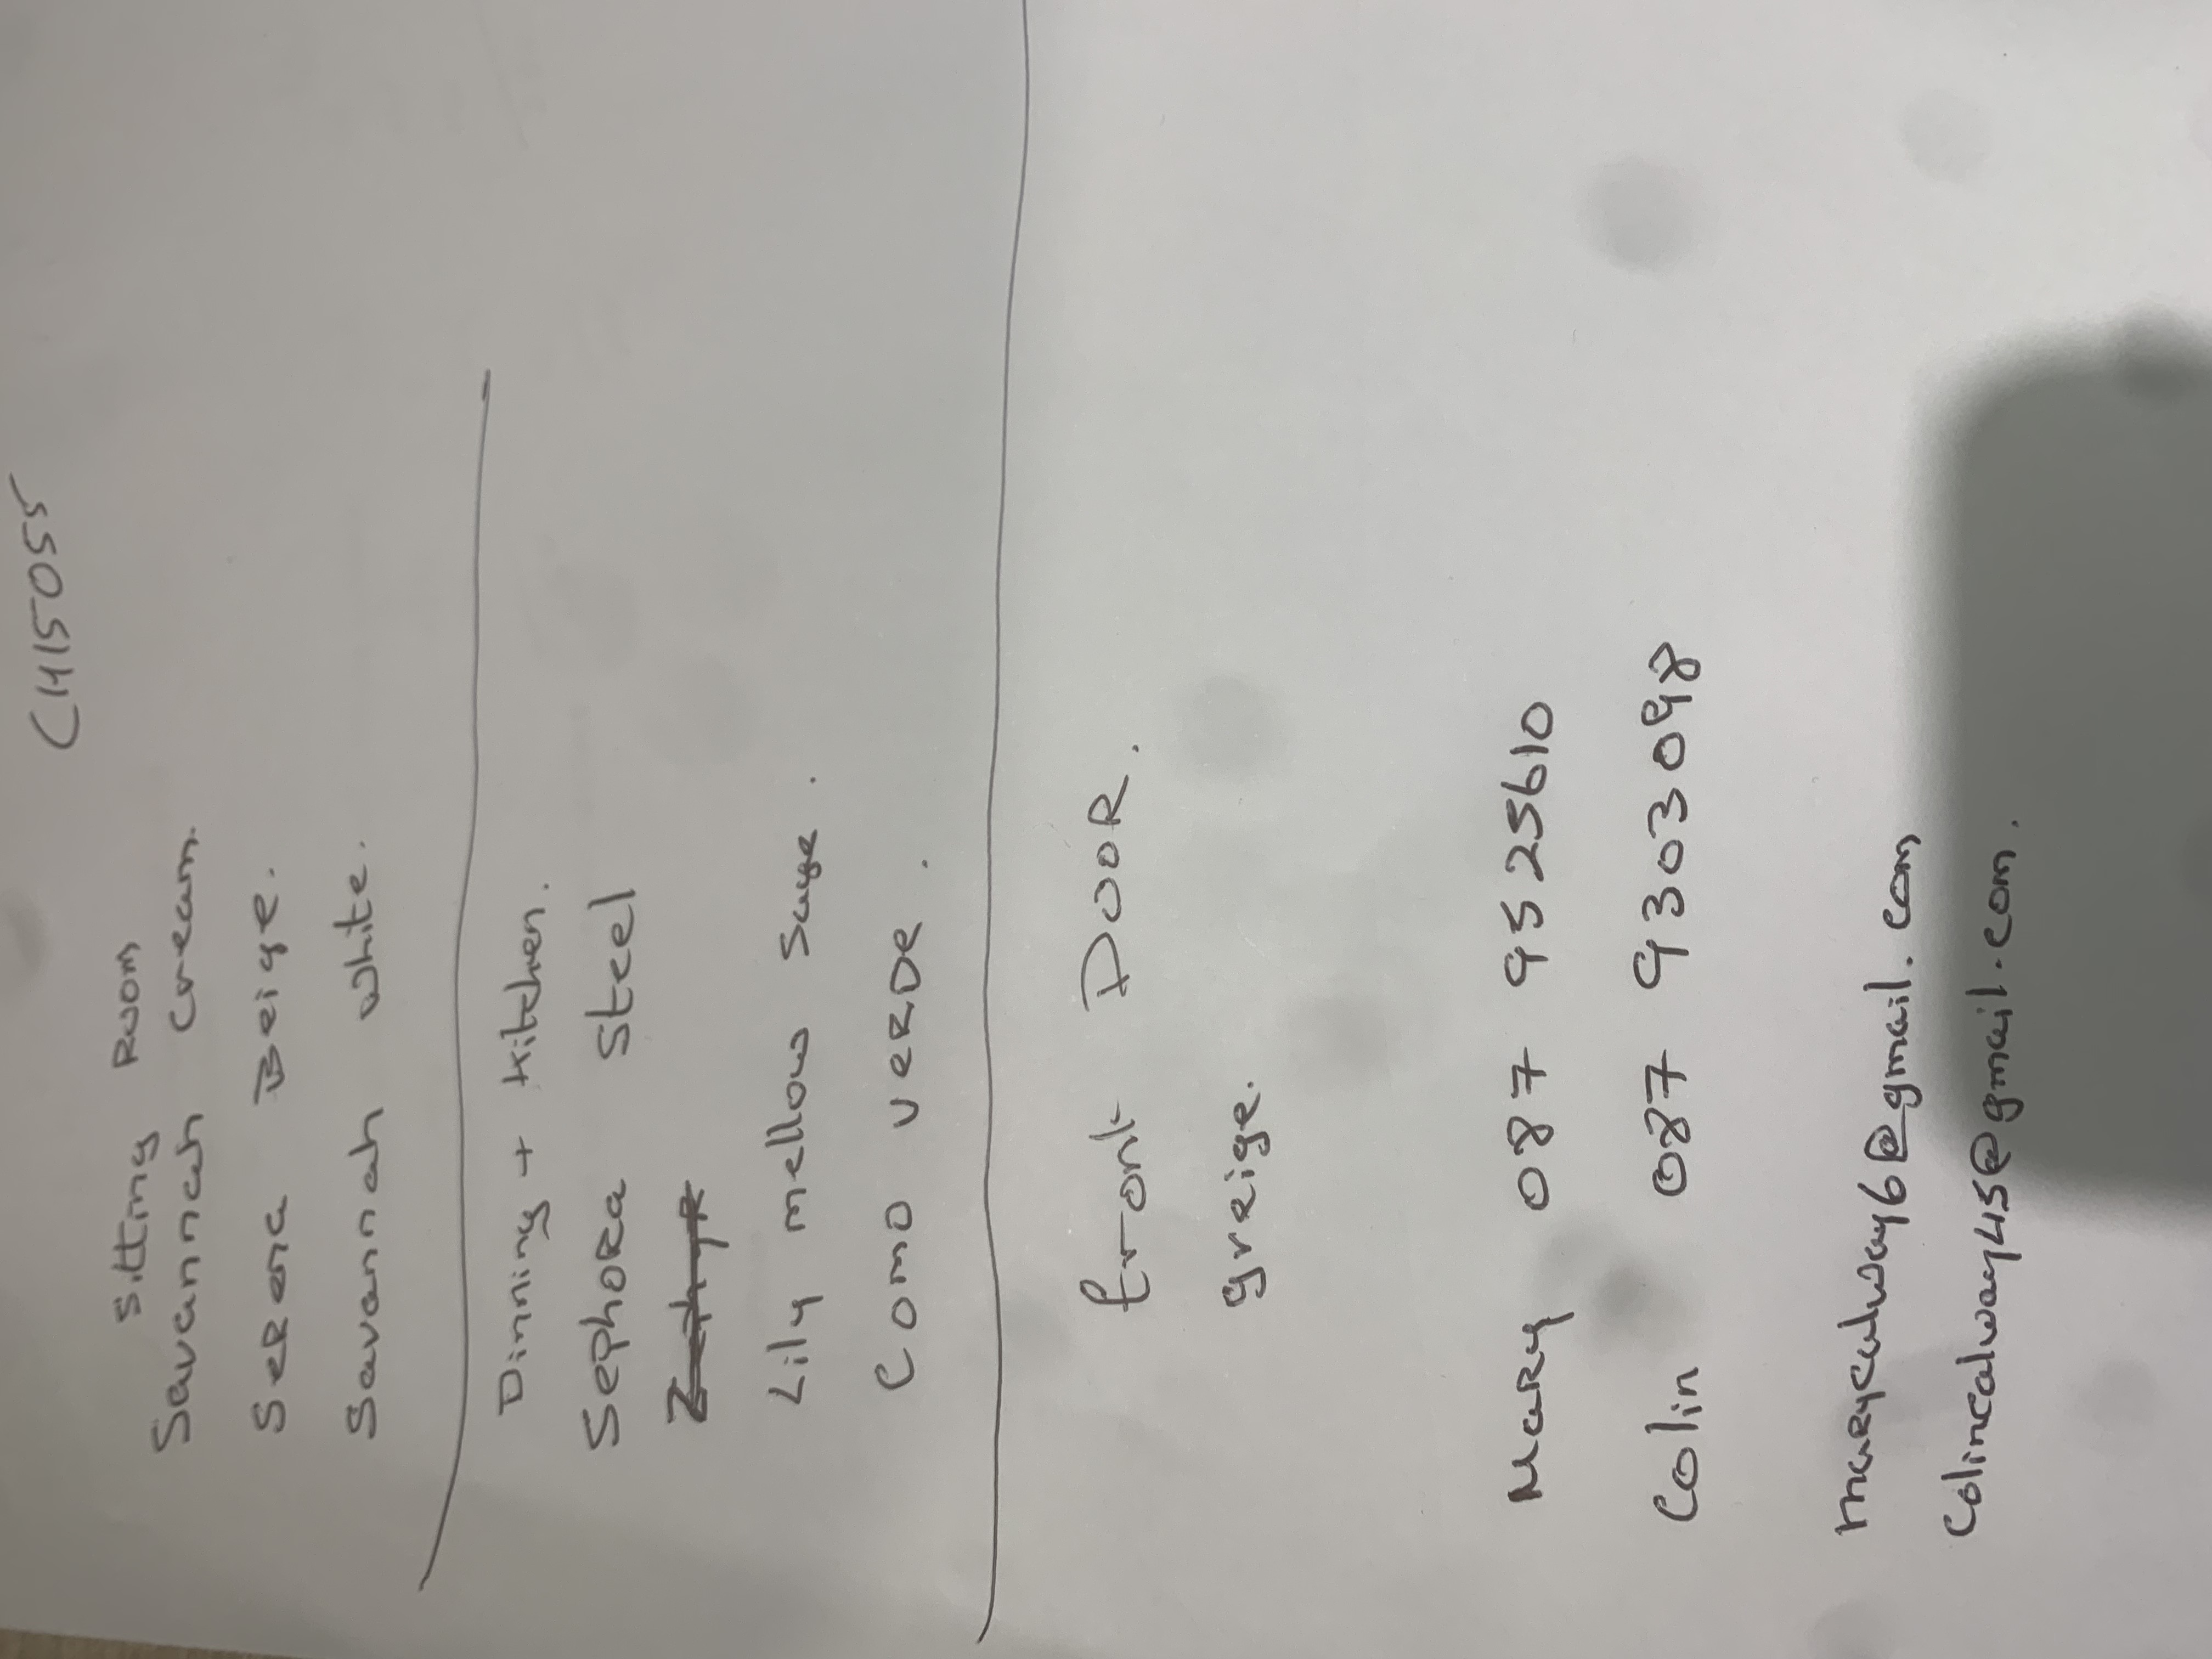 CH15055
Sitting Room
Savannah Cream.
Serena Beige.
Savannah white.
Dinning + Kitchen.
Sephora Steel
Lily mellow Sage.
Como VERDE.
front DOOR.
greige.
Mary 087 9525610
Colin 087 9303098
marycalway6@gmail.com
Colincalway45@gmail.com.